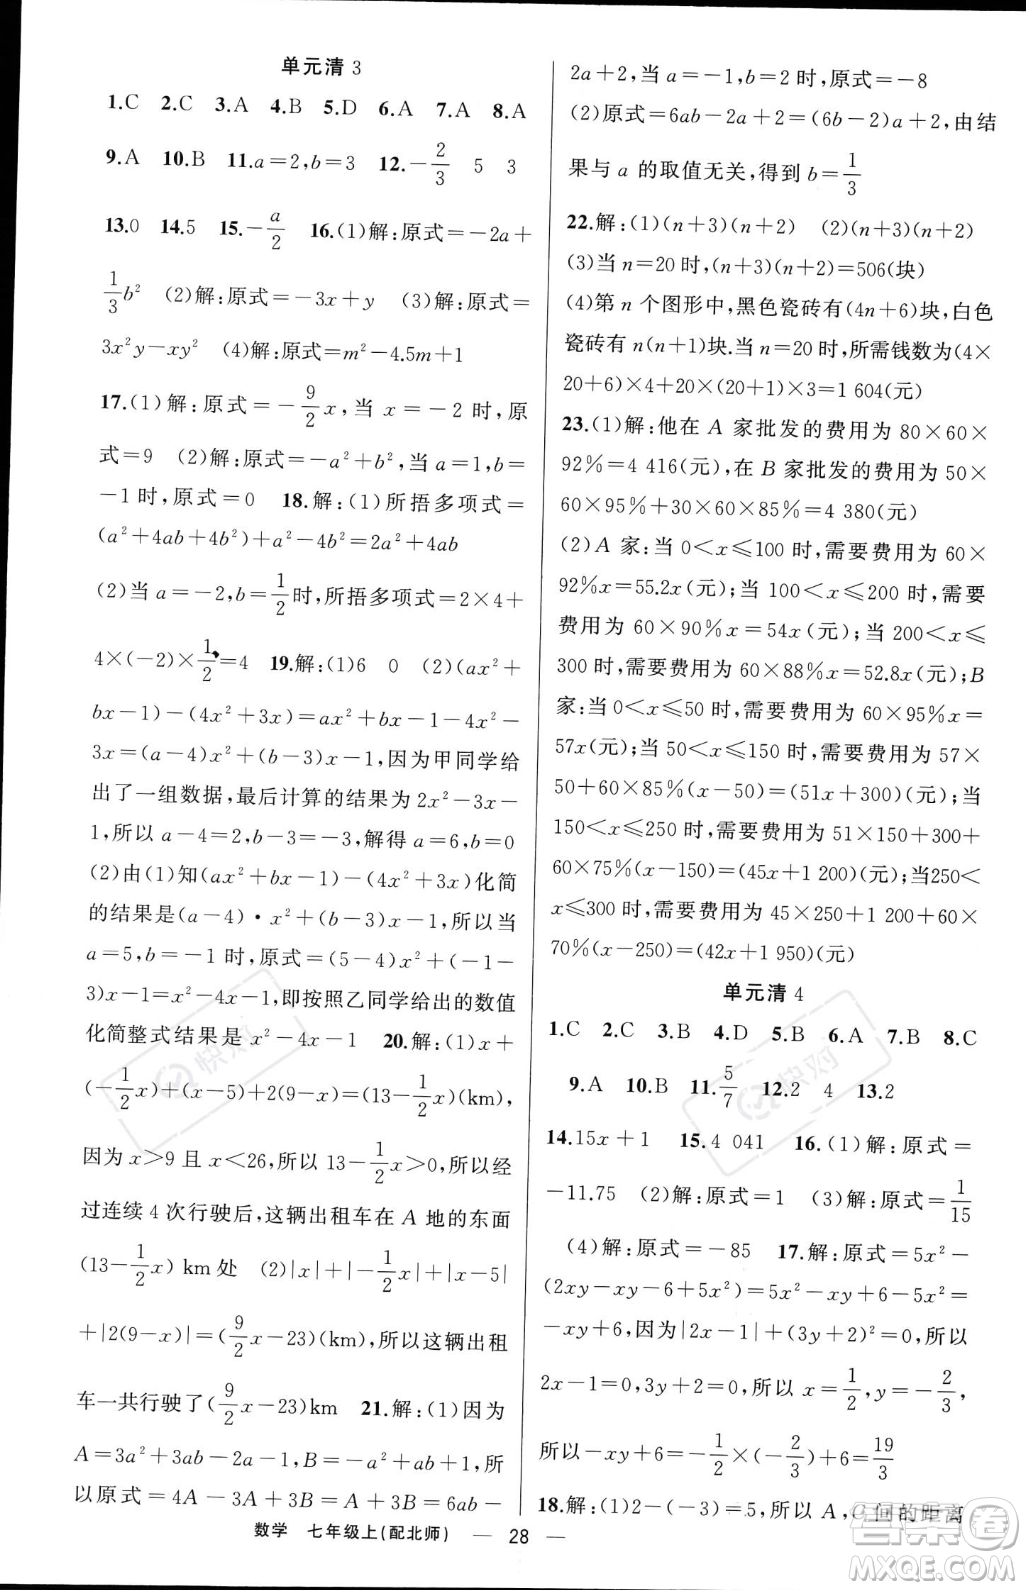 单元清 3
1.C 2.C 3.A 4.B 5.D 6.A 7.A 8.A
9.A 10.B 11.a=2,b=3 12.-2/3 5 3
13.0 14.5 15.-a/2 16.(1)解:原式=-2a+
1/3b² (2)解:原式=-3x+y (3)解:原式=
3x²y-xy² (4)解:原式=m²-4.5m+1
17.(1)解:原式=-9/2x,当 x=-2 时,原
式=9 (2)解:原式=-a²+b²,当 a=1,b=
-1 时,原式=0 18.解:(1)所捂多项式=
(a²+4ab+4b²)+a²-4b²=2a²+4ab
(2)当 a=-2,b=1/2时,所捂多项式=2×4+
4×(-2)×1/2=4 19.解:(1)6 0 (2)(ax²+
bx-1)-(4x²+3x)=ax²+bx-1-4x²-
3x=(a-4)x²+(b-3)x-1,因为甲同学给
出了一组数据,最后计算的结果为 2x²-3x-
1,所以 a-4=2,b-3=-3,解得 a=6,b=0
(2)由(1)知(ax²+bx-1)-(4x²+3x)化简
的结果是(a-4)·x²+(b-3)x-1,所以当
a=5,b=-1 时,原式=(5-4)x²+(-1-
3)x-1=x²-4x-1,即按照乙同学给出的数值
化简整式结果是 x²-4x-1 20.解:(1)x+
(-1/2x)+(x-5)+2(9-x)=(13-1/2x)(km),
因为 x>9 且 x<26,所以 13-1/2x>0,所以经
过连续 4 次行驶后,这辆出租车在 A 地的东面
(13-1/2x) km处 (2)|x|+|-1/2x|+|x-5|
+|2(9-x)|=(9/2x-23)(km),所以这辆出租
车一共行驶了(9/2x-23)km 21.解:(1)因为
A=3a²+3ab-2a-1,B=-a²+ab+1,所
以原式=4A-3A+3B=A+3B=6ab-
2a+2,当 a=-1,b=2 时,原式=-8
(2)原式=6ab-2a+2=(6b-2)a+2,由结
果与 a 的取值无关,得到 b=1/3
22.解:(1)(n+3)(n+2) (2)(n+3)(n+2)
(3)当 n=20 时,(n+3)(n+2)=506(块)
(4)第 n 个图形中,黑色瓷砖有(4n+6)块,白色
瓷砖有 n(n+1)块.当 n=20 时,所需钱数为(4×
20+6)×4+20×(20+1)×3=1 604(元)
23.(1)解:他在 A 家批发的费用为 80×60×
92%=4 416(元),在 B 家批发的费用为 50×
60×95%+30×60×85%=4 380(元)
(2)A 家:当 0<x≤100 时,需要费用为 60×
92%x=55.2x(元);当 100<x≤200 时,需要
费用为 60×90%x=54x(元);当 200<x≤
300 时,需要费用为 60×88%x=52.8x(元);B
家:当 0<x≤50 时,需要费用为 60×95%x=
57x(元);当 50<x≤150 时,需要费用为 57×
50+60×85%(x-50)=(51x+300)(元);当
150<x≤250 时,需要费用为 51×150+300+
60×75%(x-150)=(45x+1 200)(元);当 250<
x≤300 时,需要费用为 45×250+1 200+60×
70%(x-250)=(42x+1 950)(元)
单元清 4
1.C 2.C 3.B 4.D 5.B 6.A 7.B 8.C
9.A 10.B 11.5/7 12.2 4 13.2
14.15x+1 15.4 041 16.(1)解:原式=
-11.75 (2)解:原式=1 (3)解:原式=1/15
(4)解:原式=-85 17.解:原式=5x²-
(2xy-xy-6+5x²)=5x²-xy+6-5x²=
-xy+6,因为|2x-1|+(3y+2)²=0,所以
2x-1=0,3y+2=0,所以 x=1/2,y=-2/3,
所以-xy+6=-1/2×(-2/3)+6=19/3
18.解:(1)2-(-3)=5,所以 A,C 间的距离
数学 七年级上(配北师) — 28 —
快对
快对
答案圈
MXQE.COM